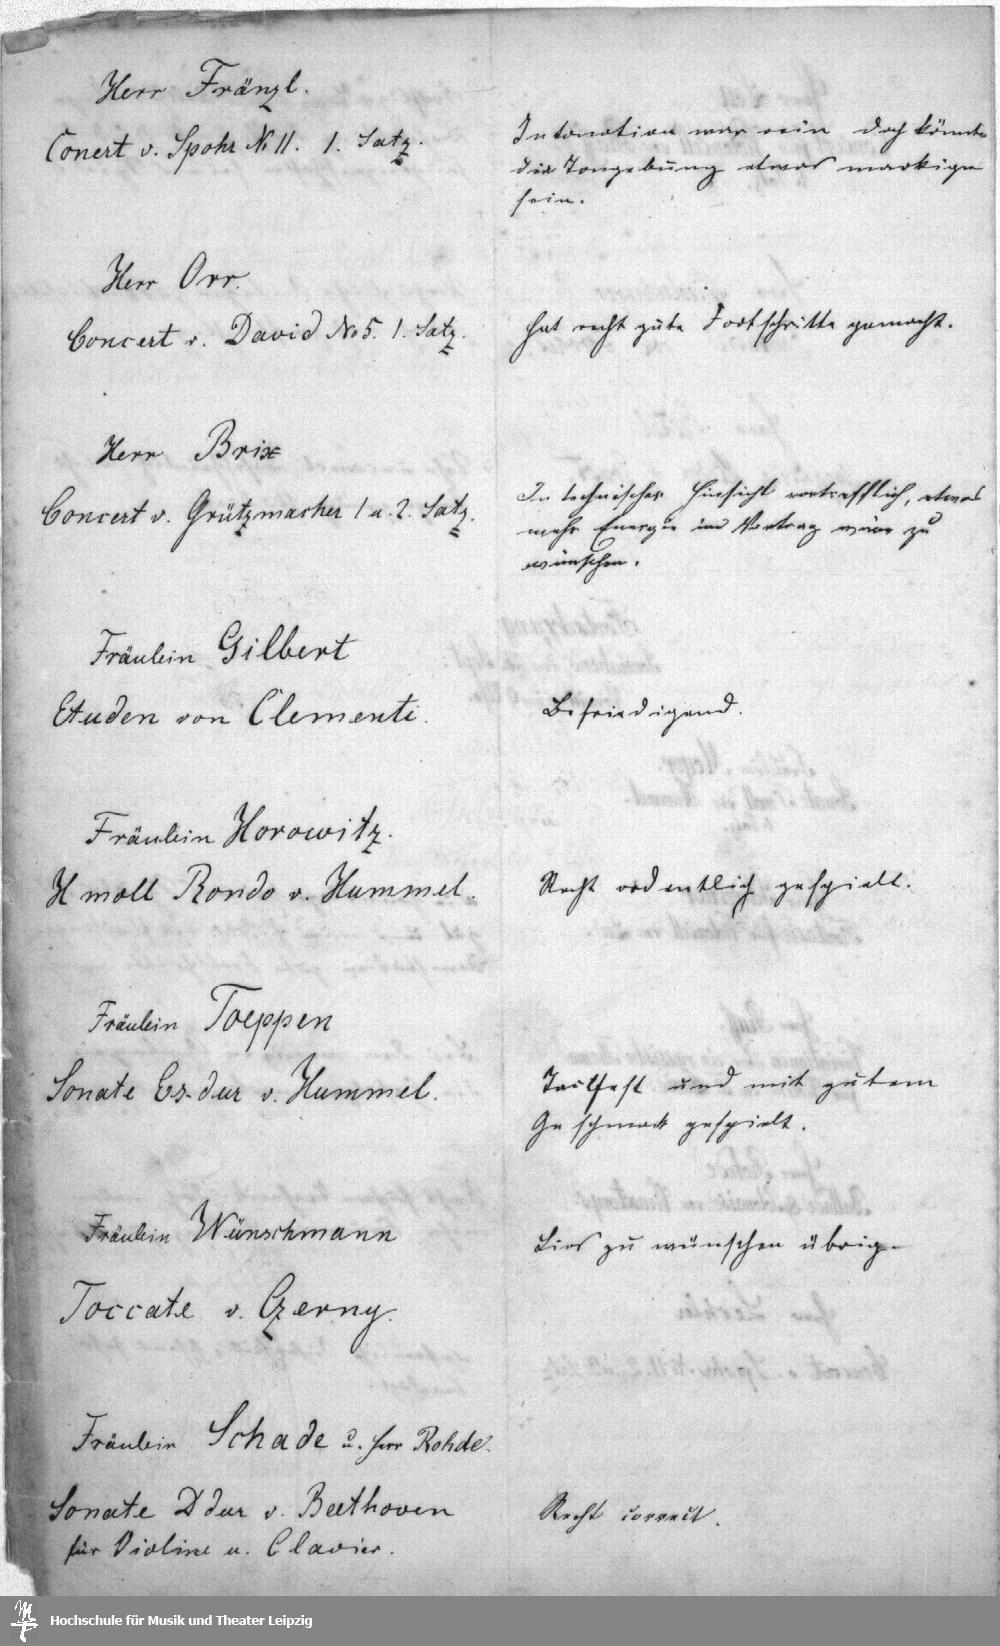 Herr Fränzl.
Conert v. Spohr No 11. 1. Satz.
Intonation war rein doch könnte
die Tongebung etwas markiger
sein.
Herr Orr.
Concert v. David No 5. 1. Satz.
Hat recht gute Fortschritte gemacht.
Herr Brix
Concert v. Grützmacher 1 u. 2. Satz.
In technischer Hinsicht vortrefflich, etwas
mehr Energie im Vortrag wäre zu
wünschen.
Fräulein Gilbert
Etuden von Clementi.
Befriedigend.
Fräulein Horowitz.
H moll Rondo v. Hummel.
Recht ordentlich gespielt.
Fräulein Toeppen
Sonate Es-dur v. Hummel.
Tactfest und mit gutem
Geschmack gespielt.
Fräulein Wünschmann
Toccate v. Czerny.
Lies zu wünschen übrig.
Fräulein Schade u. Herr Rohde.
Sonate D dur v. Beethoven
für Violine u. Clavier.
Recht correct.
Hochschule für Musik und Theater Leipzig